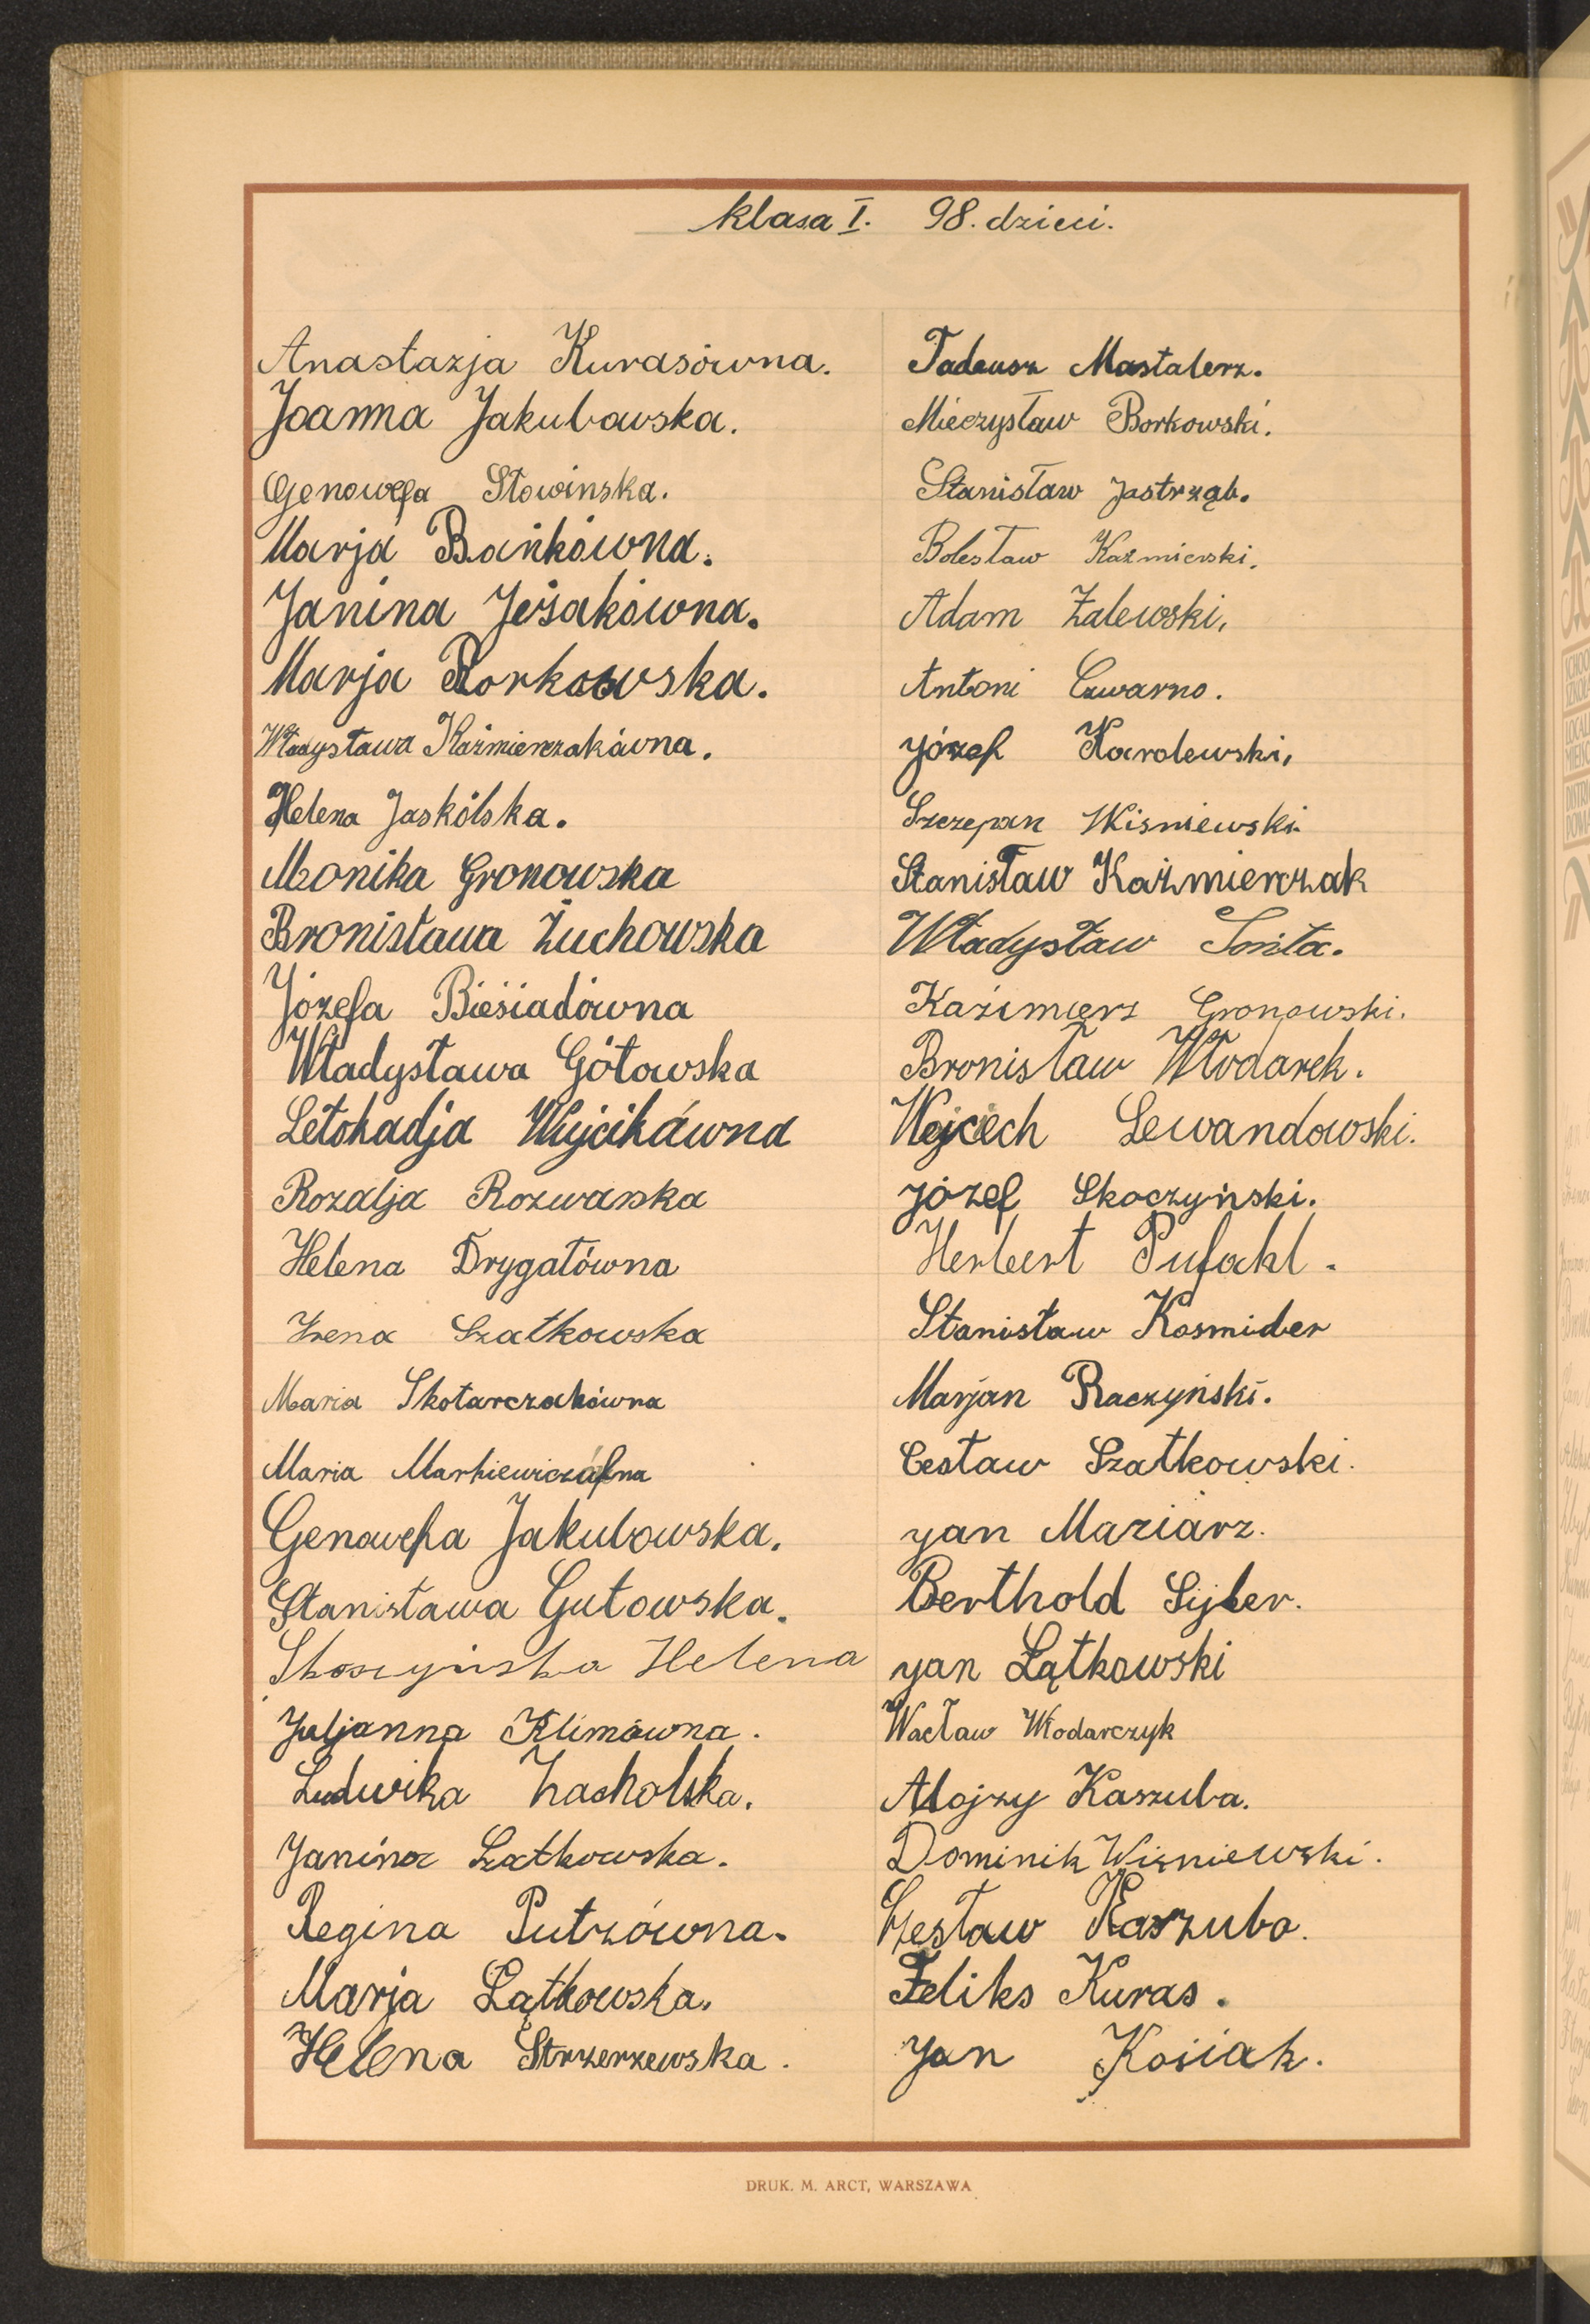 klasa I. 98. dzieci.
Anastazja Kurasówna.
Joanna Jakubowska.
Genowefa Słowinska.
Marja Bańkówna.
Janina Jeżakówna.
Marja Borkowska.
Władysława Kaźmierczakówna.
Helena Jaskólska.
Monika Gronowska
Bronisława Żuchowska
Józefa Biesiadówna
Władysława Gótowska
Letokadja Wujcikówna
Rozalja Rozwańska
Helena Drygałówna
Irena Szatkowska
Maria Skotarczakówna
Maria
Genowefa Jakubowska.
Stanisława Gutowska.
Skoszyńska Helena
Juljanna Klimówna.
Ludwika Zacholska.
Janina Szatkowska.
Regina Putzówna.
Marja Łątkowska.
Helena Strzerzewska.
Tadeusz Mastalerz.
Mieczysław Borkowski.
Stanisław Jastrząb.
Bolesław Kaźmierski.
Adam Zalewski.
Antoni Czwarno.
Józef Karolewski.
Szczepan Wisniewski.
Stanisław Kaźmierczak
Władysław
Kazimierz Gronowski.
Bronisław Włodarek.
Wojciech Lewandowski.
józef Skoczyński.
Herbert Pufahl.
Stanisław Kosmider
Marjan Raczyński.
Cesław Szatkowski.
yan Maziarz.
Berthold
yan Łątkowski
Wacław Włodarczyk
Alojzy Kaszuba.
Dominik Wisniewski.
Czesław Kaszuba.
Feliks Kuras.
Jan Kosiak.
DRUK. M. ARCT, WARSZAWA